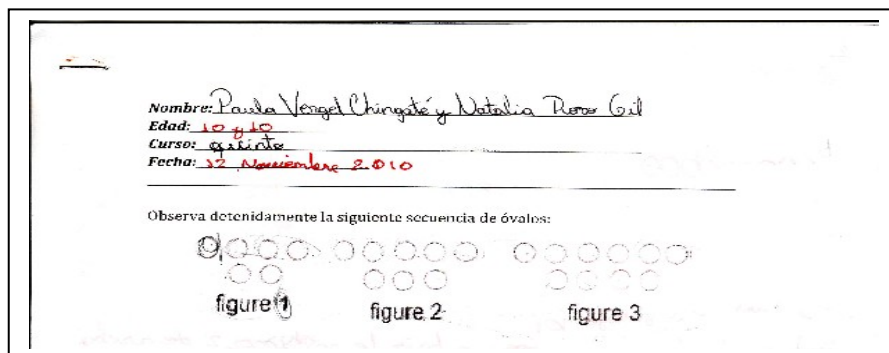 Nombre: Paula Vergel Chingaté y Natalia Roso Gil
Edad: 10 y 10
Curso: quinto
Fecha: 12 Noviembre 2010
Observa detenidamente la siguiente secuencia de óvalos:
figure 1 figure 2 figure 3